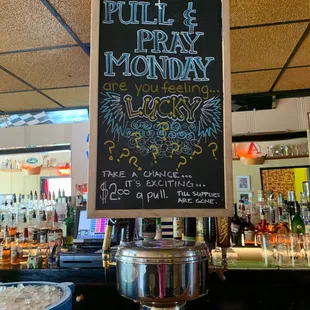 PULL &
PRAY
MONDAY
are you feeling...
LUCKY
? ? ? ? ? ? ?
TAKE A CHANCE...
IT'S EXCITING...
$2.00 a pull. TILL SUPPLIES
ARE GONE.